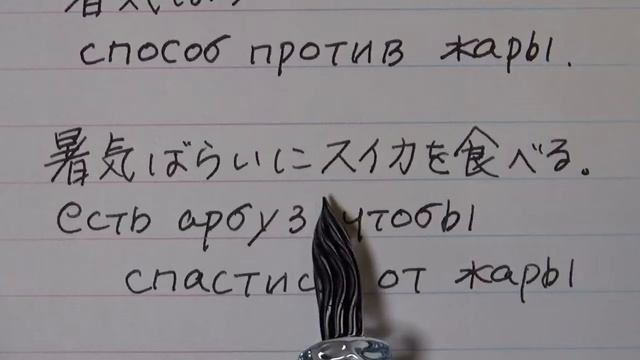 способ против жары.
暑気ばらいにスイカを食べる。
есть арбуз чтобы
от жары